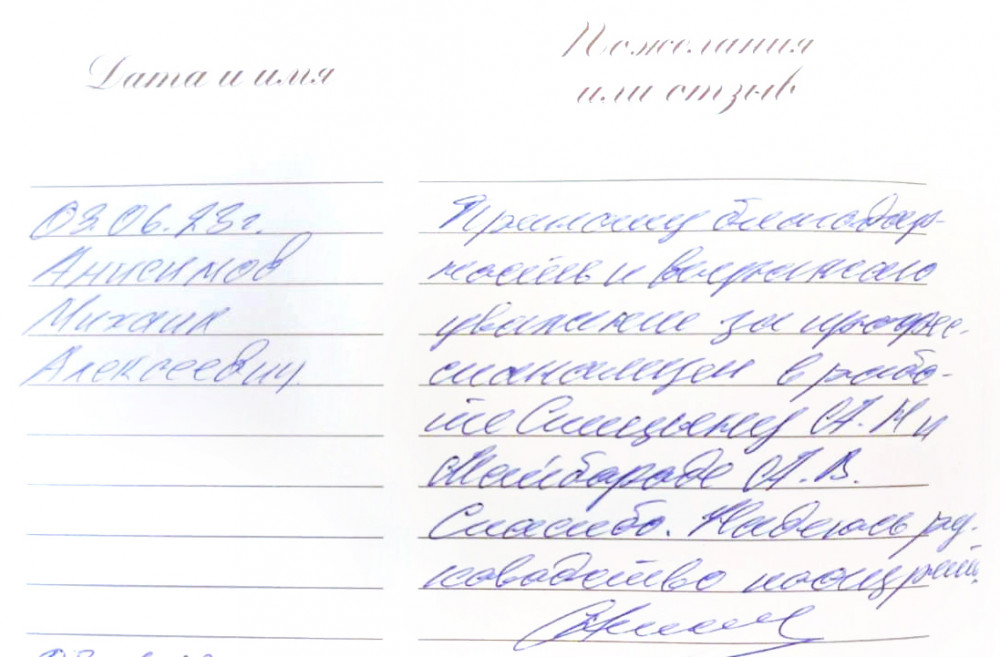 Дата и имя
Пожелания
или отзыв
03.06.23г.
Анисимов
Михаил
Алексеевич
Приношу благодар-
ность и выражаю
уважение за профес-
сионализм в рабо-
те А.Н и
Майбороде А.В.
Спасибо. Надеюсь ру-
ководство поощрит.